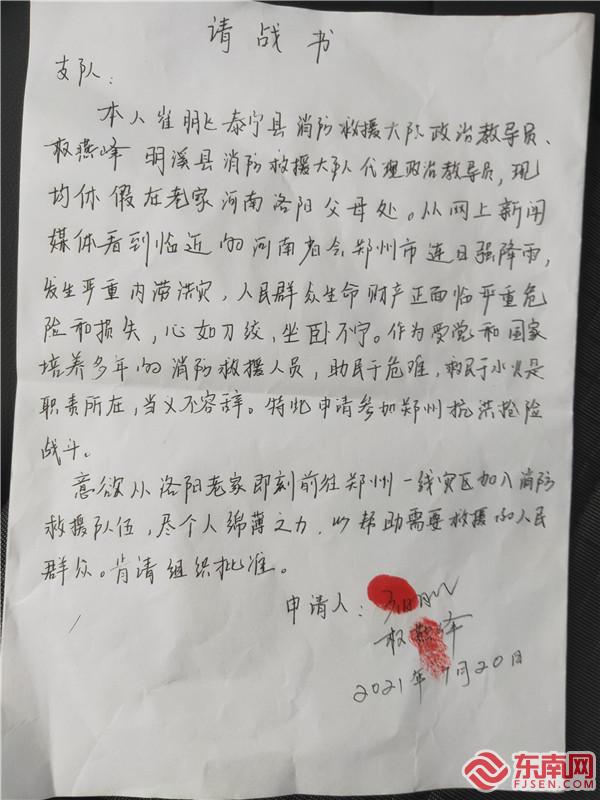 请战书
支队：
本人崔明飞泰宁县消防救援大队政治教导员、
权燕峰 明溪县消防救援大队代理政治教导员，现
均休假在老家河南洛阳父母处。从网上新闻
媒体看到临近的河南省会郑州市连日强降雨，
发生严重内涝洪灾，人民群众生命财产正面临严重危
险和损失，心如刀绞，坐卧不宁。作为受党和国家
培养多年的消防救援人员，助民于危难，救民于水火是
职责所在，当义不容辞。特此申请参加郑州抗洪抢险
战斗。
意欲从洛阳老家即刻前往郑州一线灾区加入消防
救援队伍，尽个人绵薄之力，以帮助需要救援的人民
群众。肯请组织批准。
申请人：
权燕峰
2021年7月20日
东南网
FJSEN.COM